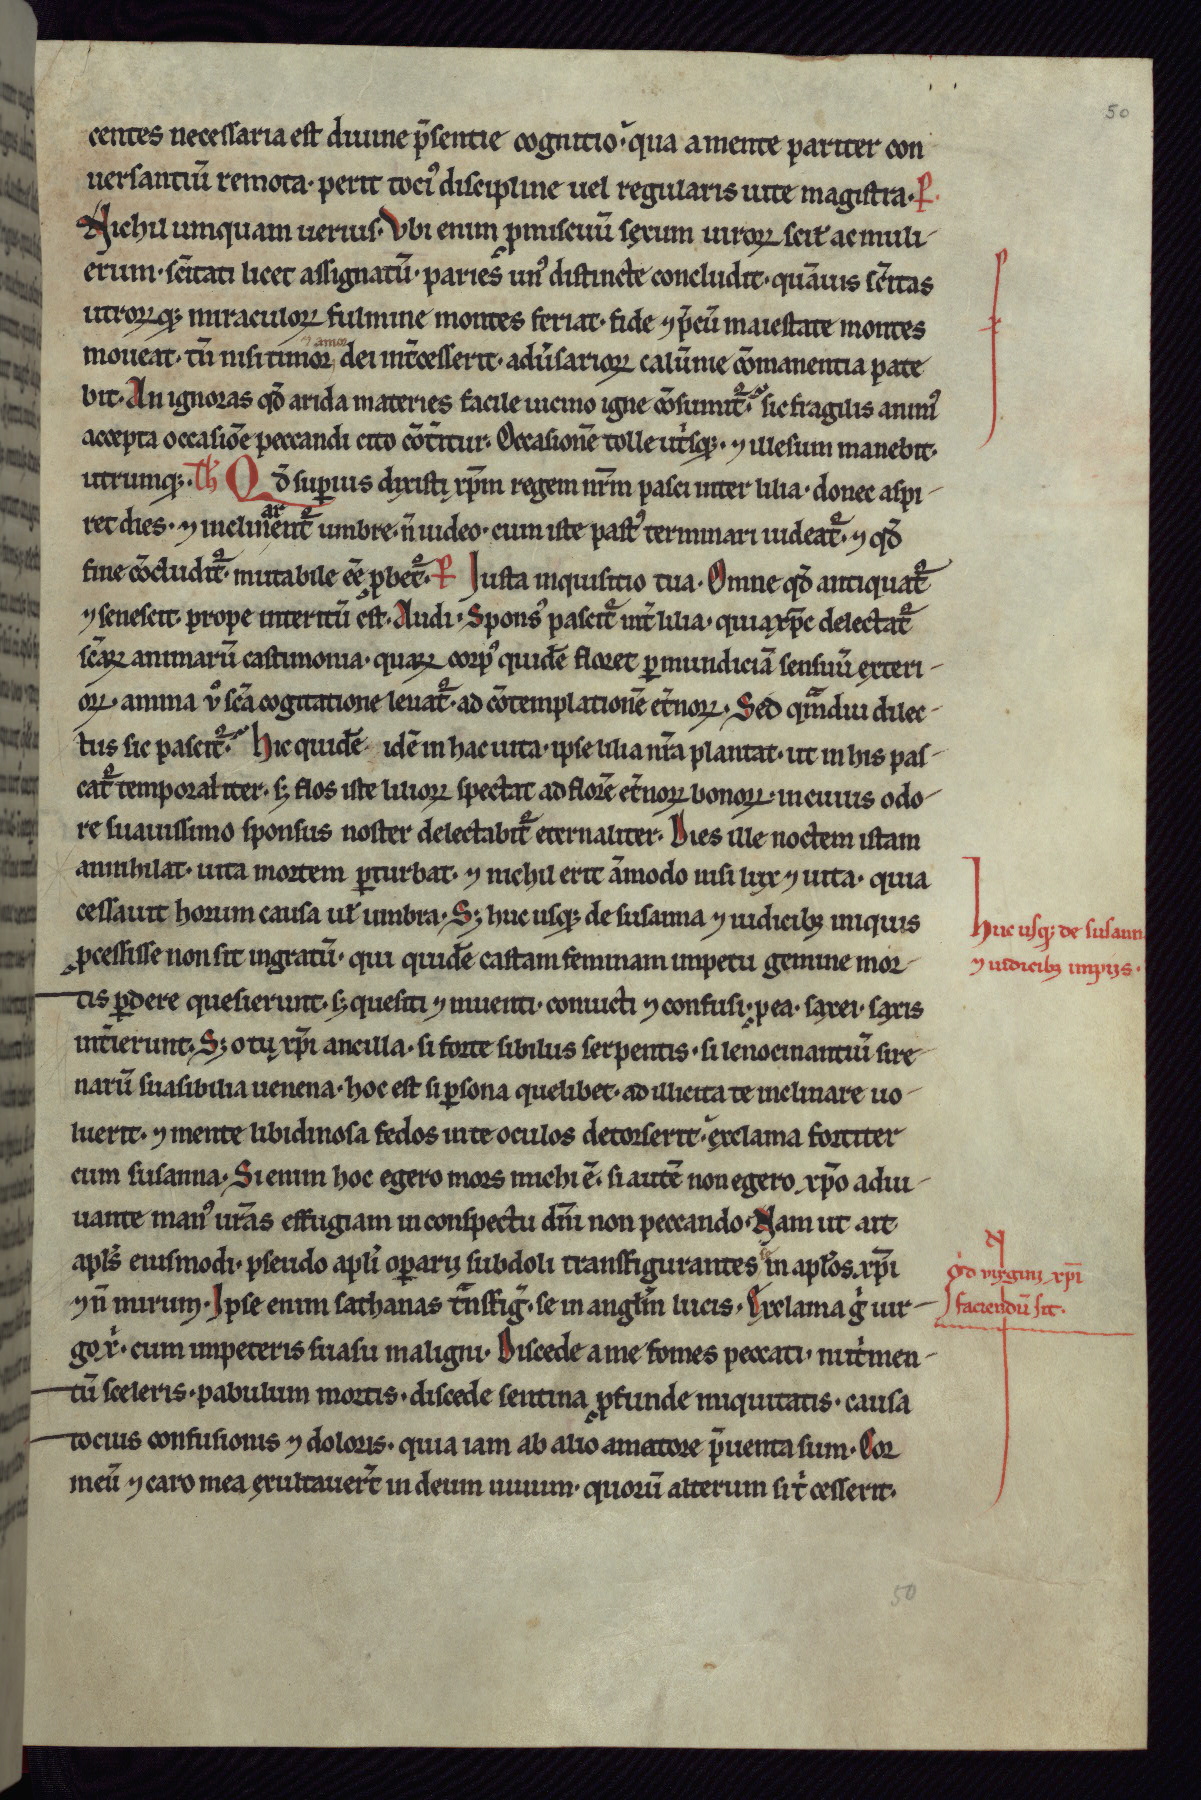 50
centes necessaria est diuine p̄sentie cognitio· qua a mente pariter con
uersantiū remota· perit tociꝰ discipline uel regularis uite magistra· P̄·
Nichil umquam uerius· Vbi enim ꝓmiscuū sexum uiroꝝ scit ac muli-
erum· sc̄itati licet assignatū· paries unꝰ distincte concludit· quāuis sc̄itas
utroꝝq; miraculoꝝ fulmine montes feriat· fide ⁊ p̄cū maiestate montes
⁊ amor
moueat· tn̄ nisi timor dei int̄cesserit· adu̓sarioꝝ calūnie cōmanentia pate
bit· An ignoras qd̄ arida materies facile uicino igne cōsumit᷑· sic fragilis animꝰ
accepta occasiōe peccandi cito cōt̓itur· Occasionē tolle ut̓sq;· ⁊ illesum manebit·
utrumq;· Th̄ Qd̄ suꝑius dixisti xp̄m regem nr̄m pasci inter lilia· donec aspi-
ar
ret dies· ⁊ inclinent᷑ umbre· n̄ uideo· cum iste pastꝰ terminari uideat᷑· ⁊ qd̄
fine cōcludit᷑· mutabile eē ꝓbet᷑· P̄ Iusta inquisitio tua· Omne qd̄ antiquat᷑
⁊ senescit· prope interitū est· Audi· Sponsꝰ pascit᷑ int̄ lilia· quia xp̄c delectat᷑
sc̄aꝝ animarū castimonia· quaꝝ corpꝰ quidē floret ꝑ mundiciā sensuū exteri-
oꝝ· anima ů sc̄a cogitatione leuat᷑· ad cōtemplationē et̓noꝝ· Sed qᵃmdiu dilec-
tus sic pascit᷑· Hic quidē idē in hac uita· ipse lilia nr̄a plantat· ut in his pas-
cat᷑ temporaliter· s; flos iste lilioꝝ spectat ad florē et̓noꝝ bonoꝝ· in cuius odo-
re suauissimo sponsus noster delectabit᷑ eternaliter· Dies ille noctem istam
annihilat· uita mortem ꝑturbat· ⁊ nichil erit āmodo nisi lux ⁊ uita· quia
cessauit horum causa ul̓ umbra· S; huc usq; de susanna ⁊ iudicib; iniquis
ꝓcessisse non sit ingratū· qui quidē castam feminam impetu gemine mor-
tis ꝑdere quesierunt· s; quesiti ⁊ inuenti· conuicti ⁊ confusi· ꝓ ea· saxei· saxis
int̓ierunt· S; o tu xp̄i ancilla· si forte sibilus serpentis· si lenocinantiū sire-
narū suasibilia uenena· hoc est si ꝑsona quelibet· ad illicita te inclinare uo-
luerit· ⁊ mente libidinosa fedos in te oculos detorserit· exclama fortiter
cum susanna· Si enim hoc egero mors michi ē· si autē non egero xp̄o adiu-
uante manꝰ ur̄as effugiam in conspectu dn̄i non peccando· Nam ut ait
apl̄s eiusmodi· pseudo apl̓i oꝑarij subdoli transfigurantes se in apl̄os xp̄i
⁊ n̄ mirum· Ipse enim sathanas tᵃnsfig᷑· se in angl̄m lucis· Exclama g̓ uir-
go x̓· cum impeteris suasu maligni· Discede a me fomes peccati· nut̓men-
tū sceleris· pabulum mortis· discede sentina ꝓfunde iniquitatis· causa
tocius confusionis ⁊ doloris· quia iam ab alio amatore p̄uenta sum· Cor
meū ⁊ caro mea exultauer̄t in deum uiuum· quorū alterum si r̓cesserit·
Huc usq; de susann
⁊ iudicib; impijs·
N
Qd̓ virgini xp̄i
faciendū sit·
50